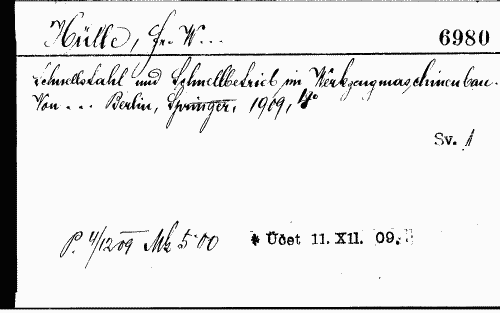 Hülle, Fr. W...
6980
Schnellstahl und Schnellbetrieb im Werkzeugmaschinenbau.
Von ... Berlin, Springer, 1909,
Sv. 1
P. 4/12 09 Mk 5·00 * Účet 11. XII. 09.